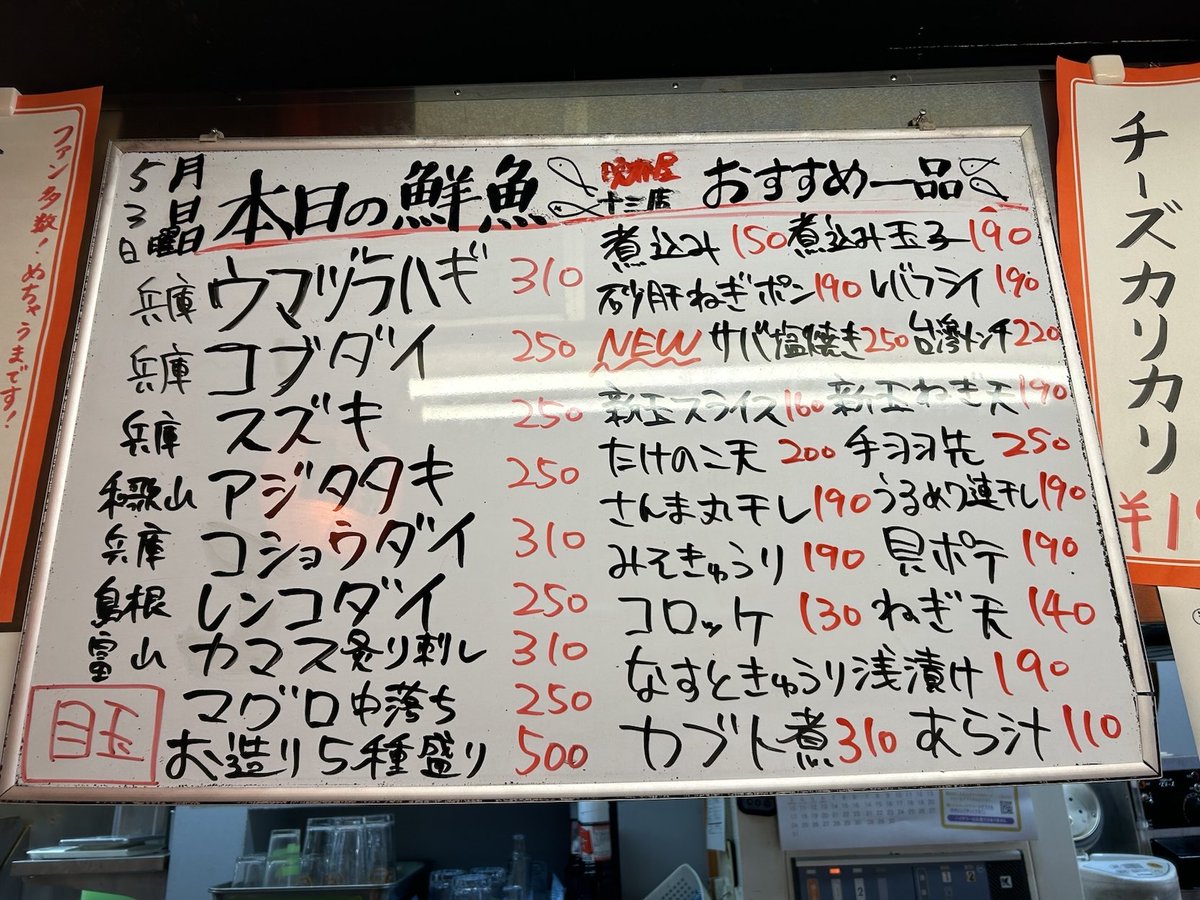 5月
3日
日曜日
本日の鮮魚
兵庫 ウマヅラハギ 310
兵庫 コブダイ 250
兵庫 スズキ 250
和歌山 アジタタキ 250
兵庫 コショウダイ 310
島根 レンコダイ 250
富山 カマス炙り刺し 310
マグロ中落ち 250
目玉 お造り5種盛り 500
十三店
おすすめ一品
煮込み 150 煮込み玉子 190
砂肝ねぎポン 190 レバフライ 190
NEW サバ塩焼き 250 台湾メンチ 220
新玉スライス 160 新玉ねぎ天 190
たけのこ天 200 手羽先 250
さんま丸干し 190 うるめ連干し 190
みそきゅうり 190 貝ポテ 190
コロッケ 130 ねぎ天 140
なすときゅうり浅漬け 190
カブト煮 310 あら汁 110
ファン多数!めちゃうまです!
チーズカリカリ